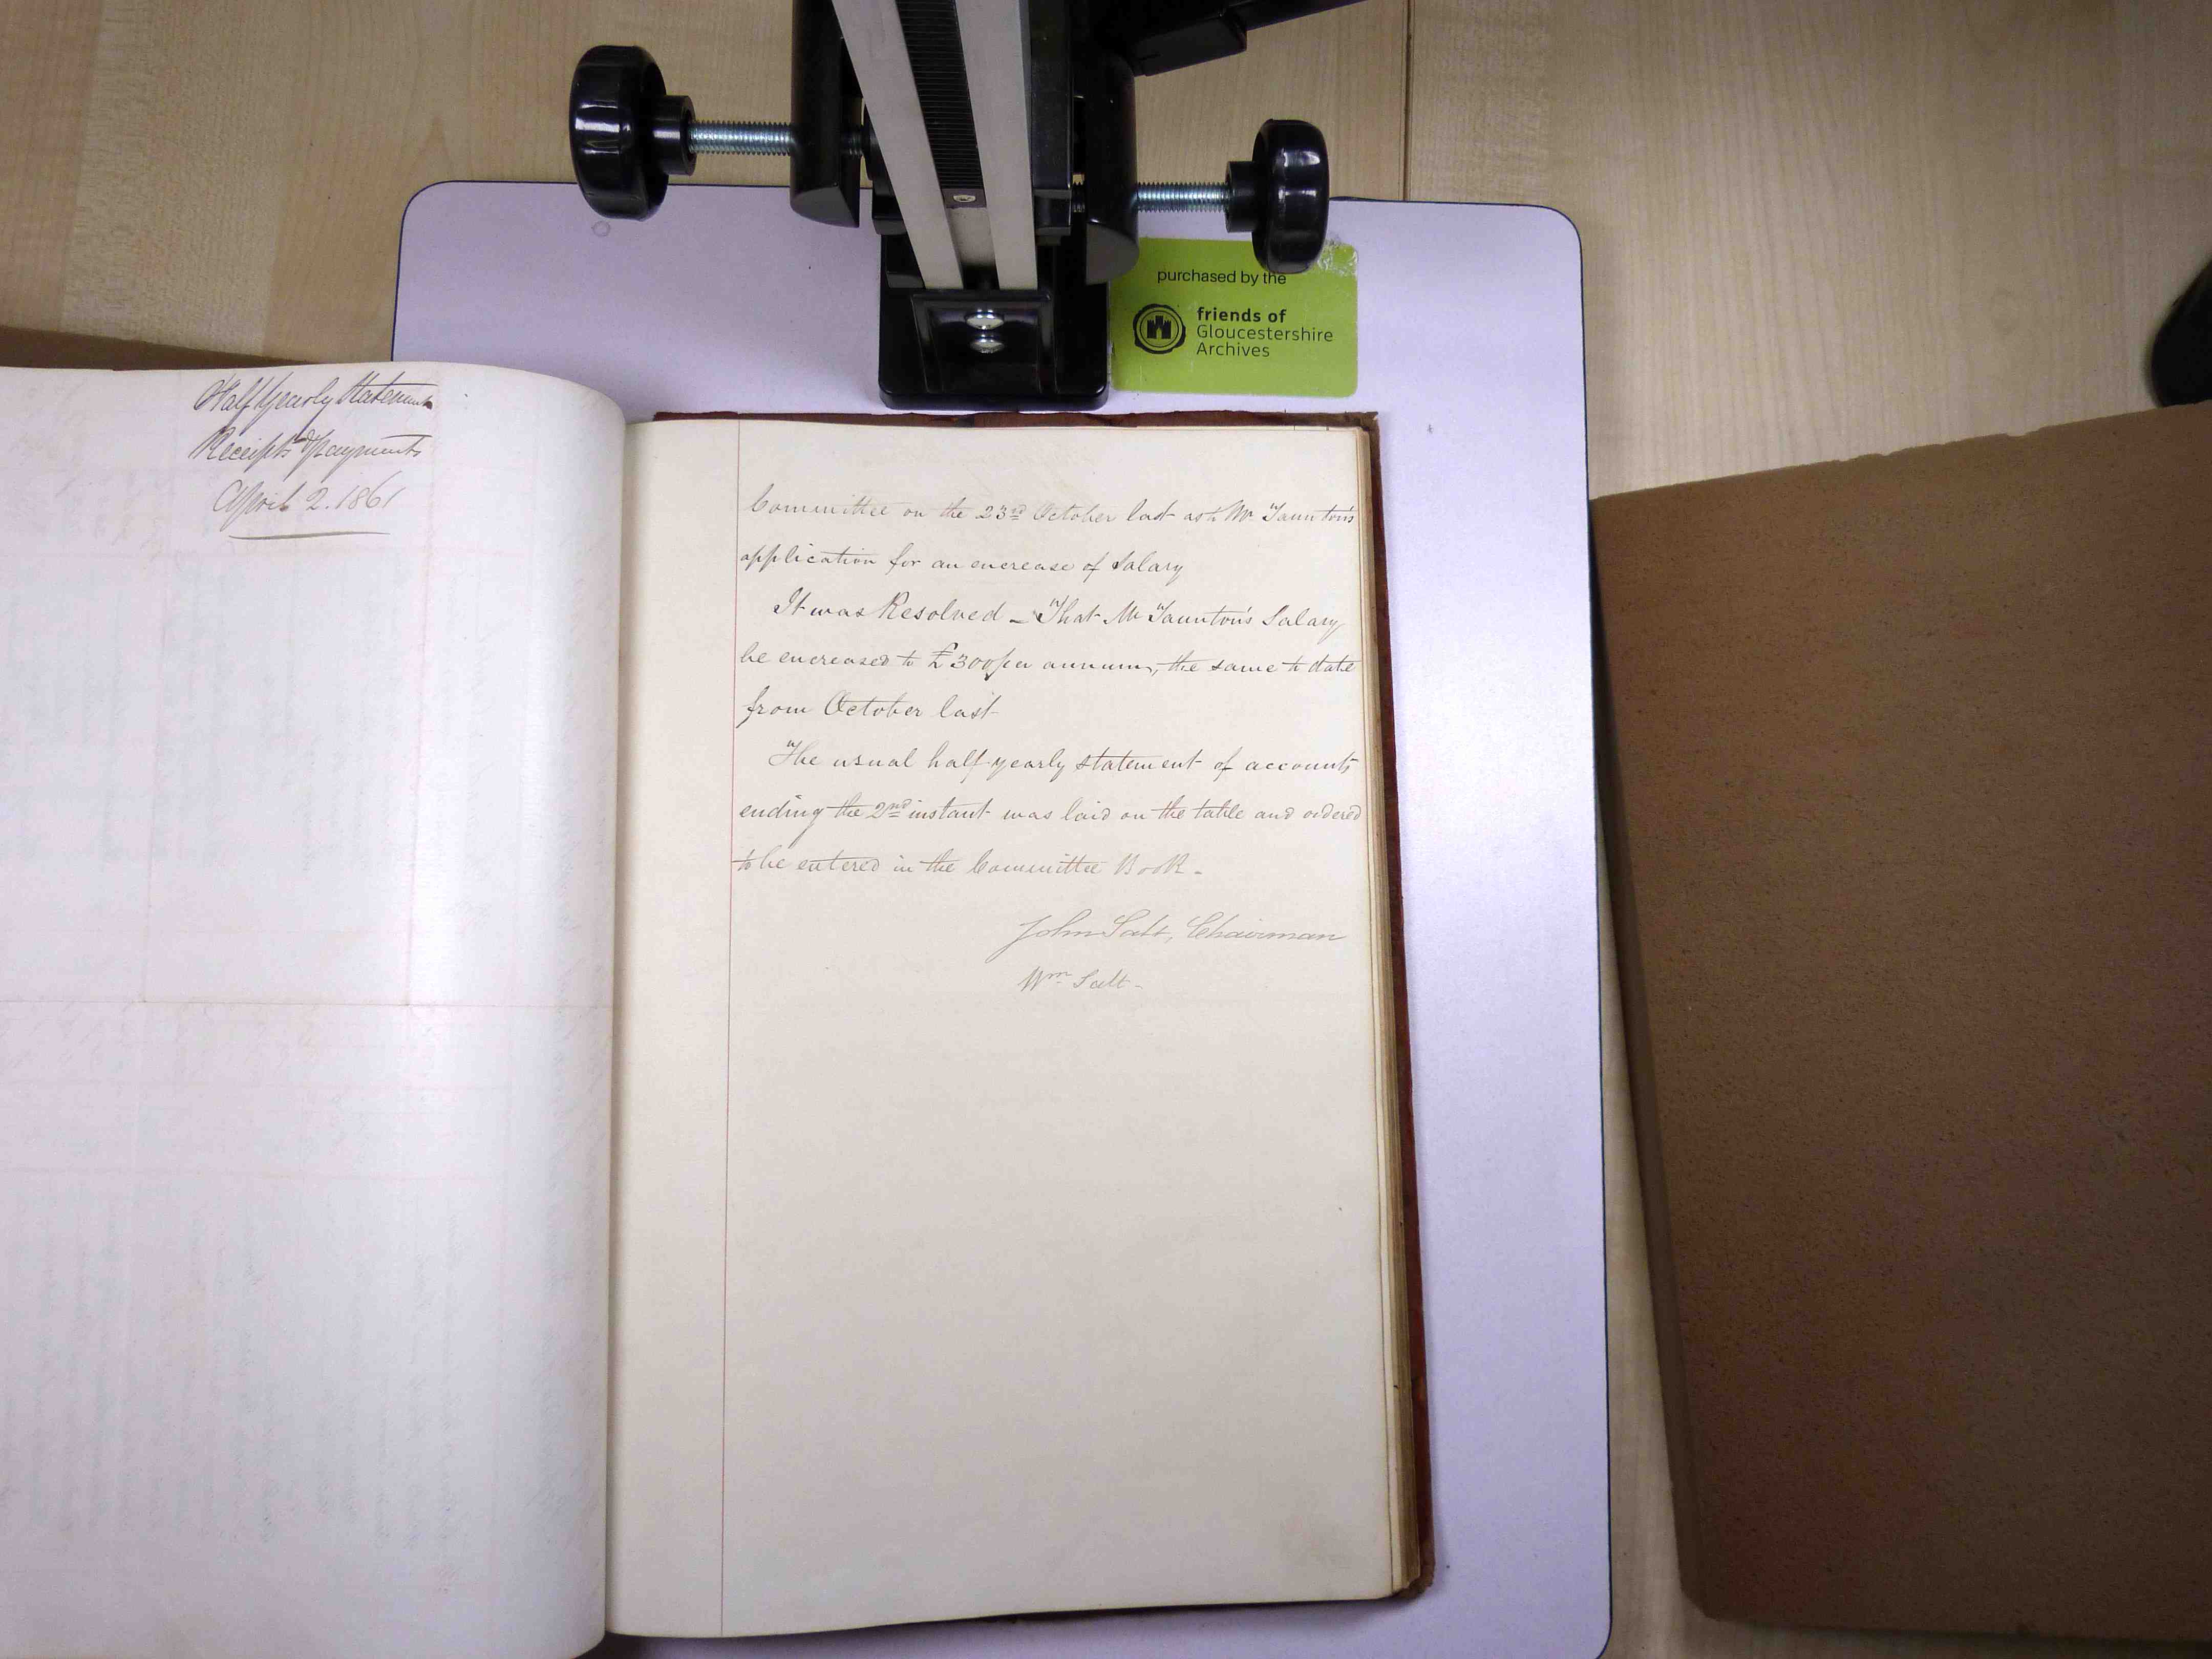 purchased by the
friends of
Gloucestershire
Archives
Half Yearly Statement
Receipts & Payments
April 2. 1861
Committee on the 23rd October last as to Mr Taunton's
application for an encrease of Salary
It was Resolved – That Mr Taunton's Salary
be encreased to £300 per annum, the same to date
from October last
The usual half yearly statement of accounts
ending the 2nd instant was laid on the table and ordered
to be entered in the Committee Book –
John Salt, Chairman
Wm Salt –